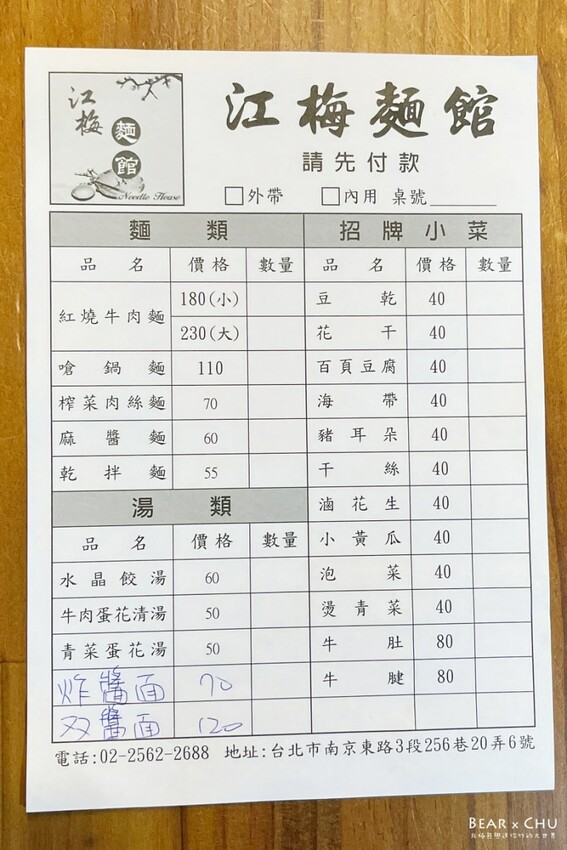 江梅
麵館
Noodle House
江梅麵館
請先付款
□外帶 □內用 桌號
麵類
品名 價格 數量
紅燒牛肉麵 180(小)
230(大)
嗆鍋麵 110
榨菜肉絲麵 70
麻醬麵 60
乾拌麵 55
湯類
品名 價格 數量
水晶餃湯 60
牛肉蛋花清湯 50
青菜蛋花湯 50
炸醬面 70
双醬面 120
招牌小菜
品名 價格 數量
豆乾 40
花干 40
百頁豆腐 40
海帶 40
豬耳朵 40
干絲 40
滷花生 40
小黃瓜 40
泡菜 40
燙青菜 40
牛肚 80
牛腱 80
電話:02-2562-2688 地址:台北市南京東路3段256巷20弄6號
BEAR x CHU